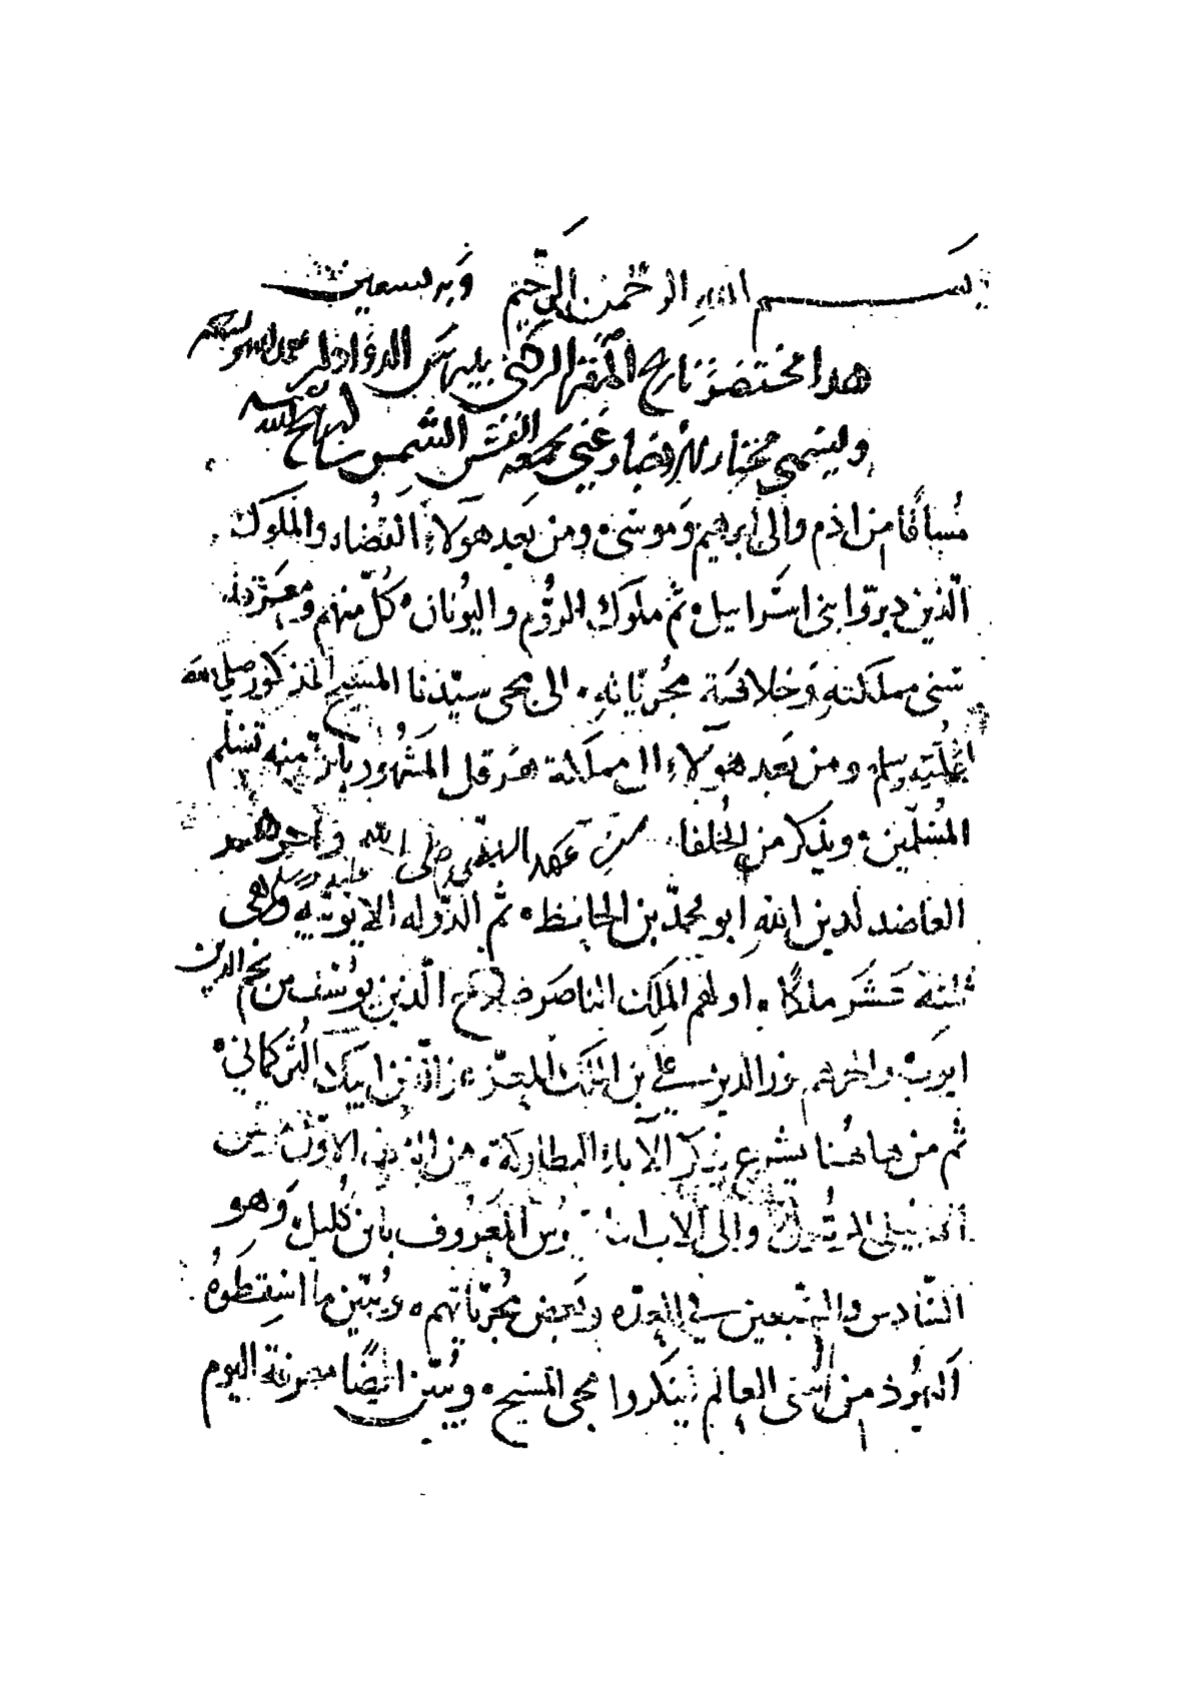 بسم الله الرحمن الرحيم وبه نستعين
هدا مختصر تاريخ المقر الركنى بيبرس الدوادار
وليسمى مختار عنى بجمعه القس الشمس
مُساقًا من ادم والى ابرهيم وموسَى ومن بَعد هولاء القضاه والملوك
الّذين دبرّوا بنى اسَراييل ثم ملوك الرُوم واليُونان كُلّ منهم
سنى مملكته وخلافته مجُريّاته الى مجى سيّدنا المسَيح المذكور صلى الله
عليه وسلم ومن بَعد هولاء الى مملكة هرقل المشهُور بانّ منه تسلّم
المُسْلمين ويذكر من الخُلفا من عَهد النبى صلى الله عليه وسلم واخرهم
العاضد لدين الله ابو محمدّ بن الحافظ ثم الدّوله الايوبيّه وهى
ثلثة عَشَر ملكًا اولهم الملِك الناصَر صلاح الّدين يوُسُف بن نجم الدين
ايوب واخرهم نور الدين على بن الملك المعِز عز الدّين ايبك التُركمانى
ثم من هاهُنا يشرع بذكر الآباء البطاركة من الاوّل
الانجيلى الرسُول والى الاب المعَروُف بابن كُليل وَهو
السّادس والسّبعين فى العِدّه وبعض مجُريّاتهم ويُبيّن ما اسْقطوهُ
اليهُود من سنى العالم لينكروا مجى المسَيح ويُبيّن ايضًا معرفة اليوم